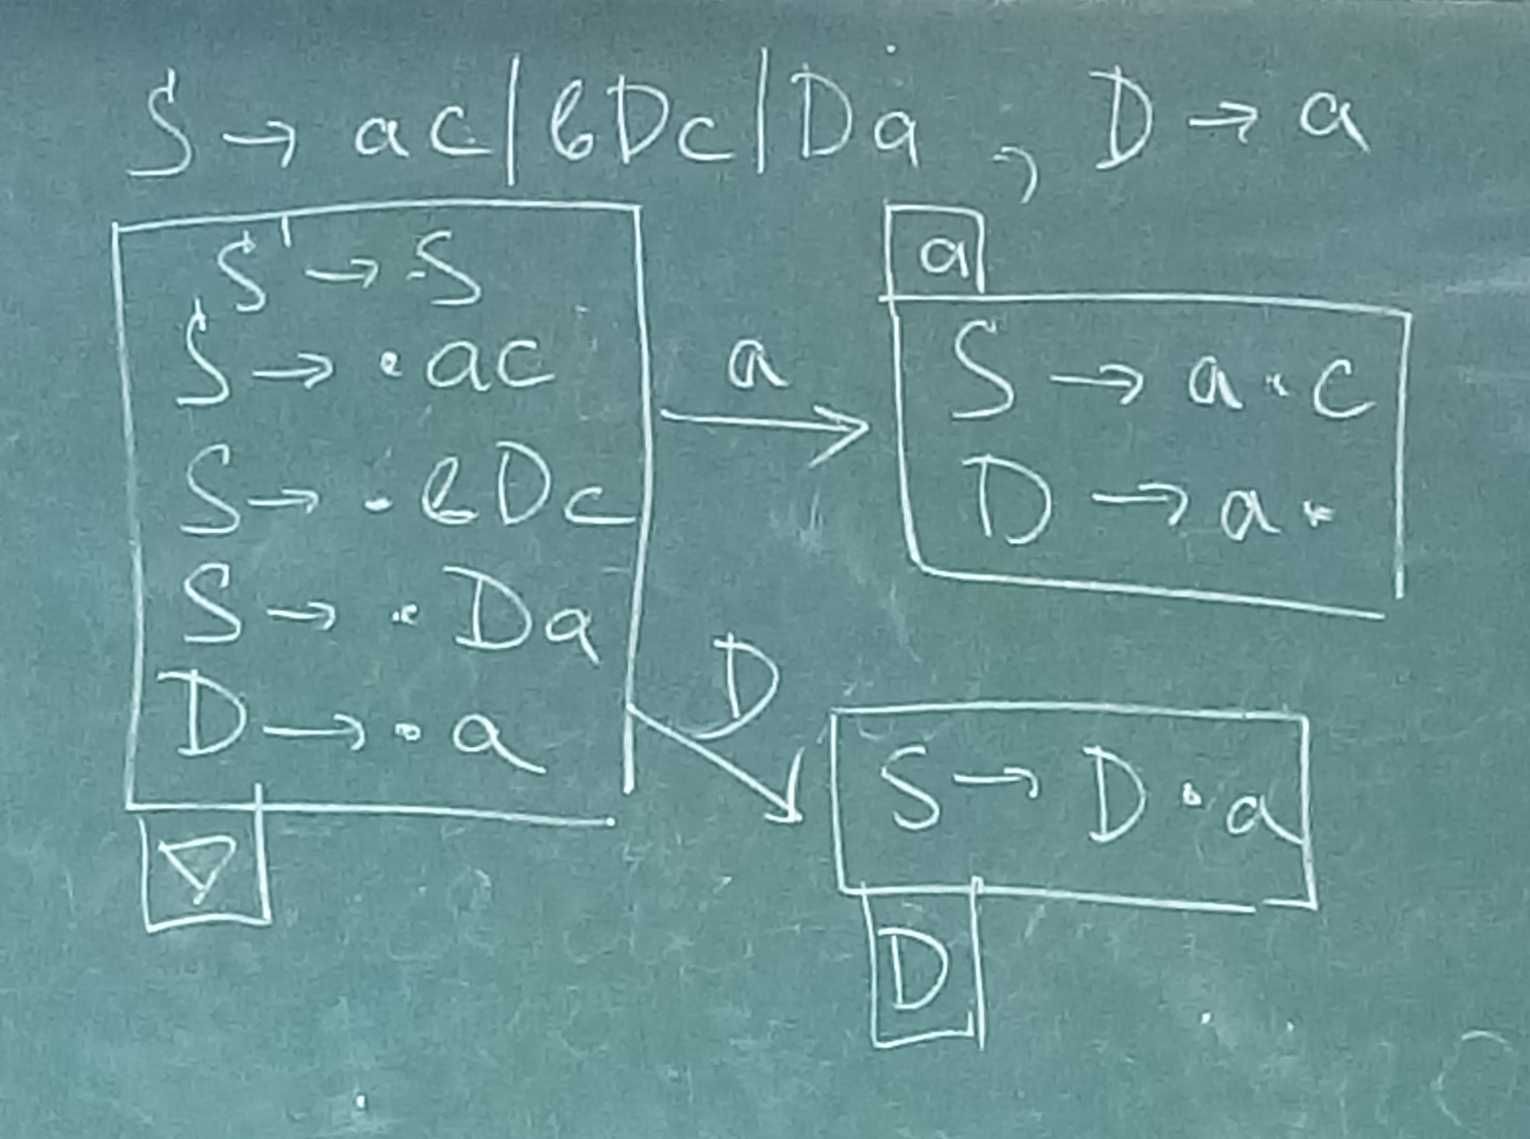 S → ac | bDc | Da , D → a
S' → ·S
S → ·ac
S → ·bDc
S → ·Da
D → ·a
▽
a
a
S → a·c
D → a·
D
S → D·a
D